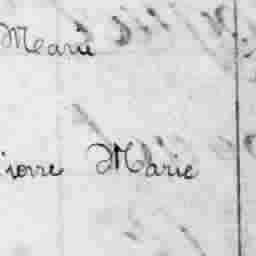 Marie
ierre Marie